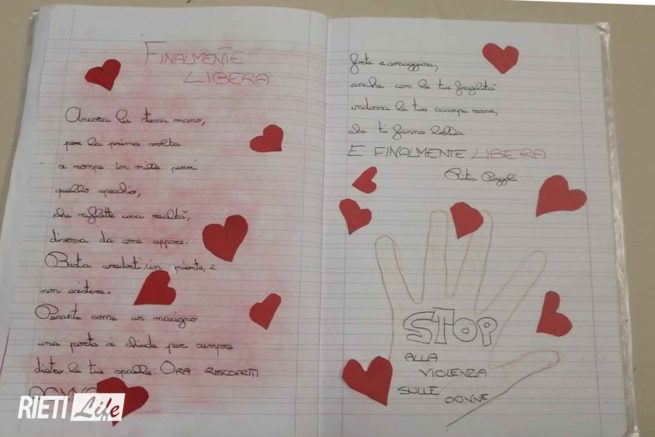 FINALMENTE
LIBERA
Ancora la stessa mano,
per la prima volta
si rompe in mille pezzi
quello specchio,
che riflette una realtà,
diversa da come appare.
Basta crederti in niente, e
non esistere.
Pesante come un macigno
una porta si chiude per sempre
dietro le tue spalle. ORA RISCOPRITI
DONNA
forte e coraggiosa,
anche con le tue fragilità
indossa le tue scarpe rosse,
che ti fanno bella
E FINALMENTE LIBERA
Rita
STOP
ALLA
VIOLENZA
SULLE DONNE
RIETI Life